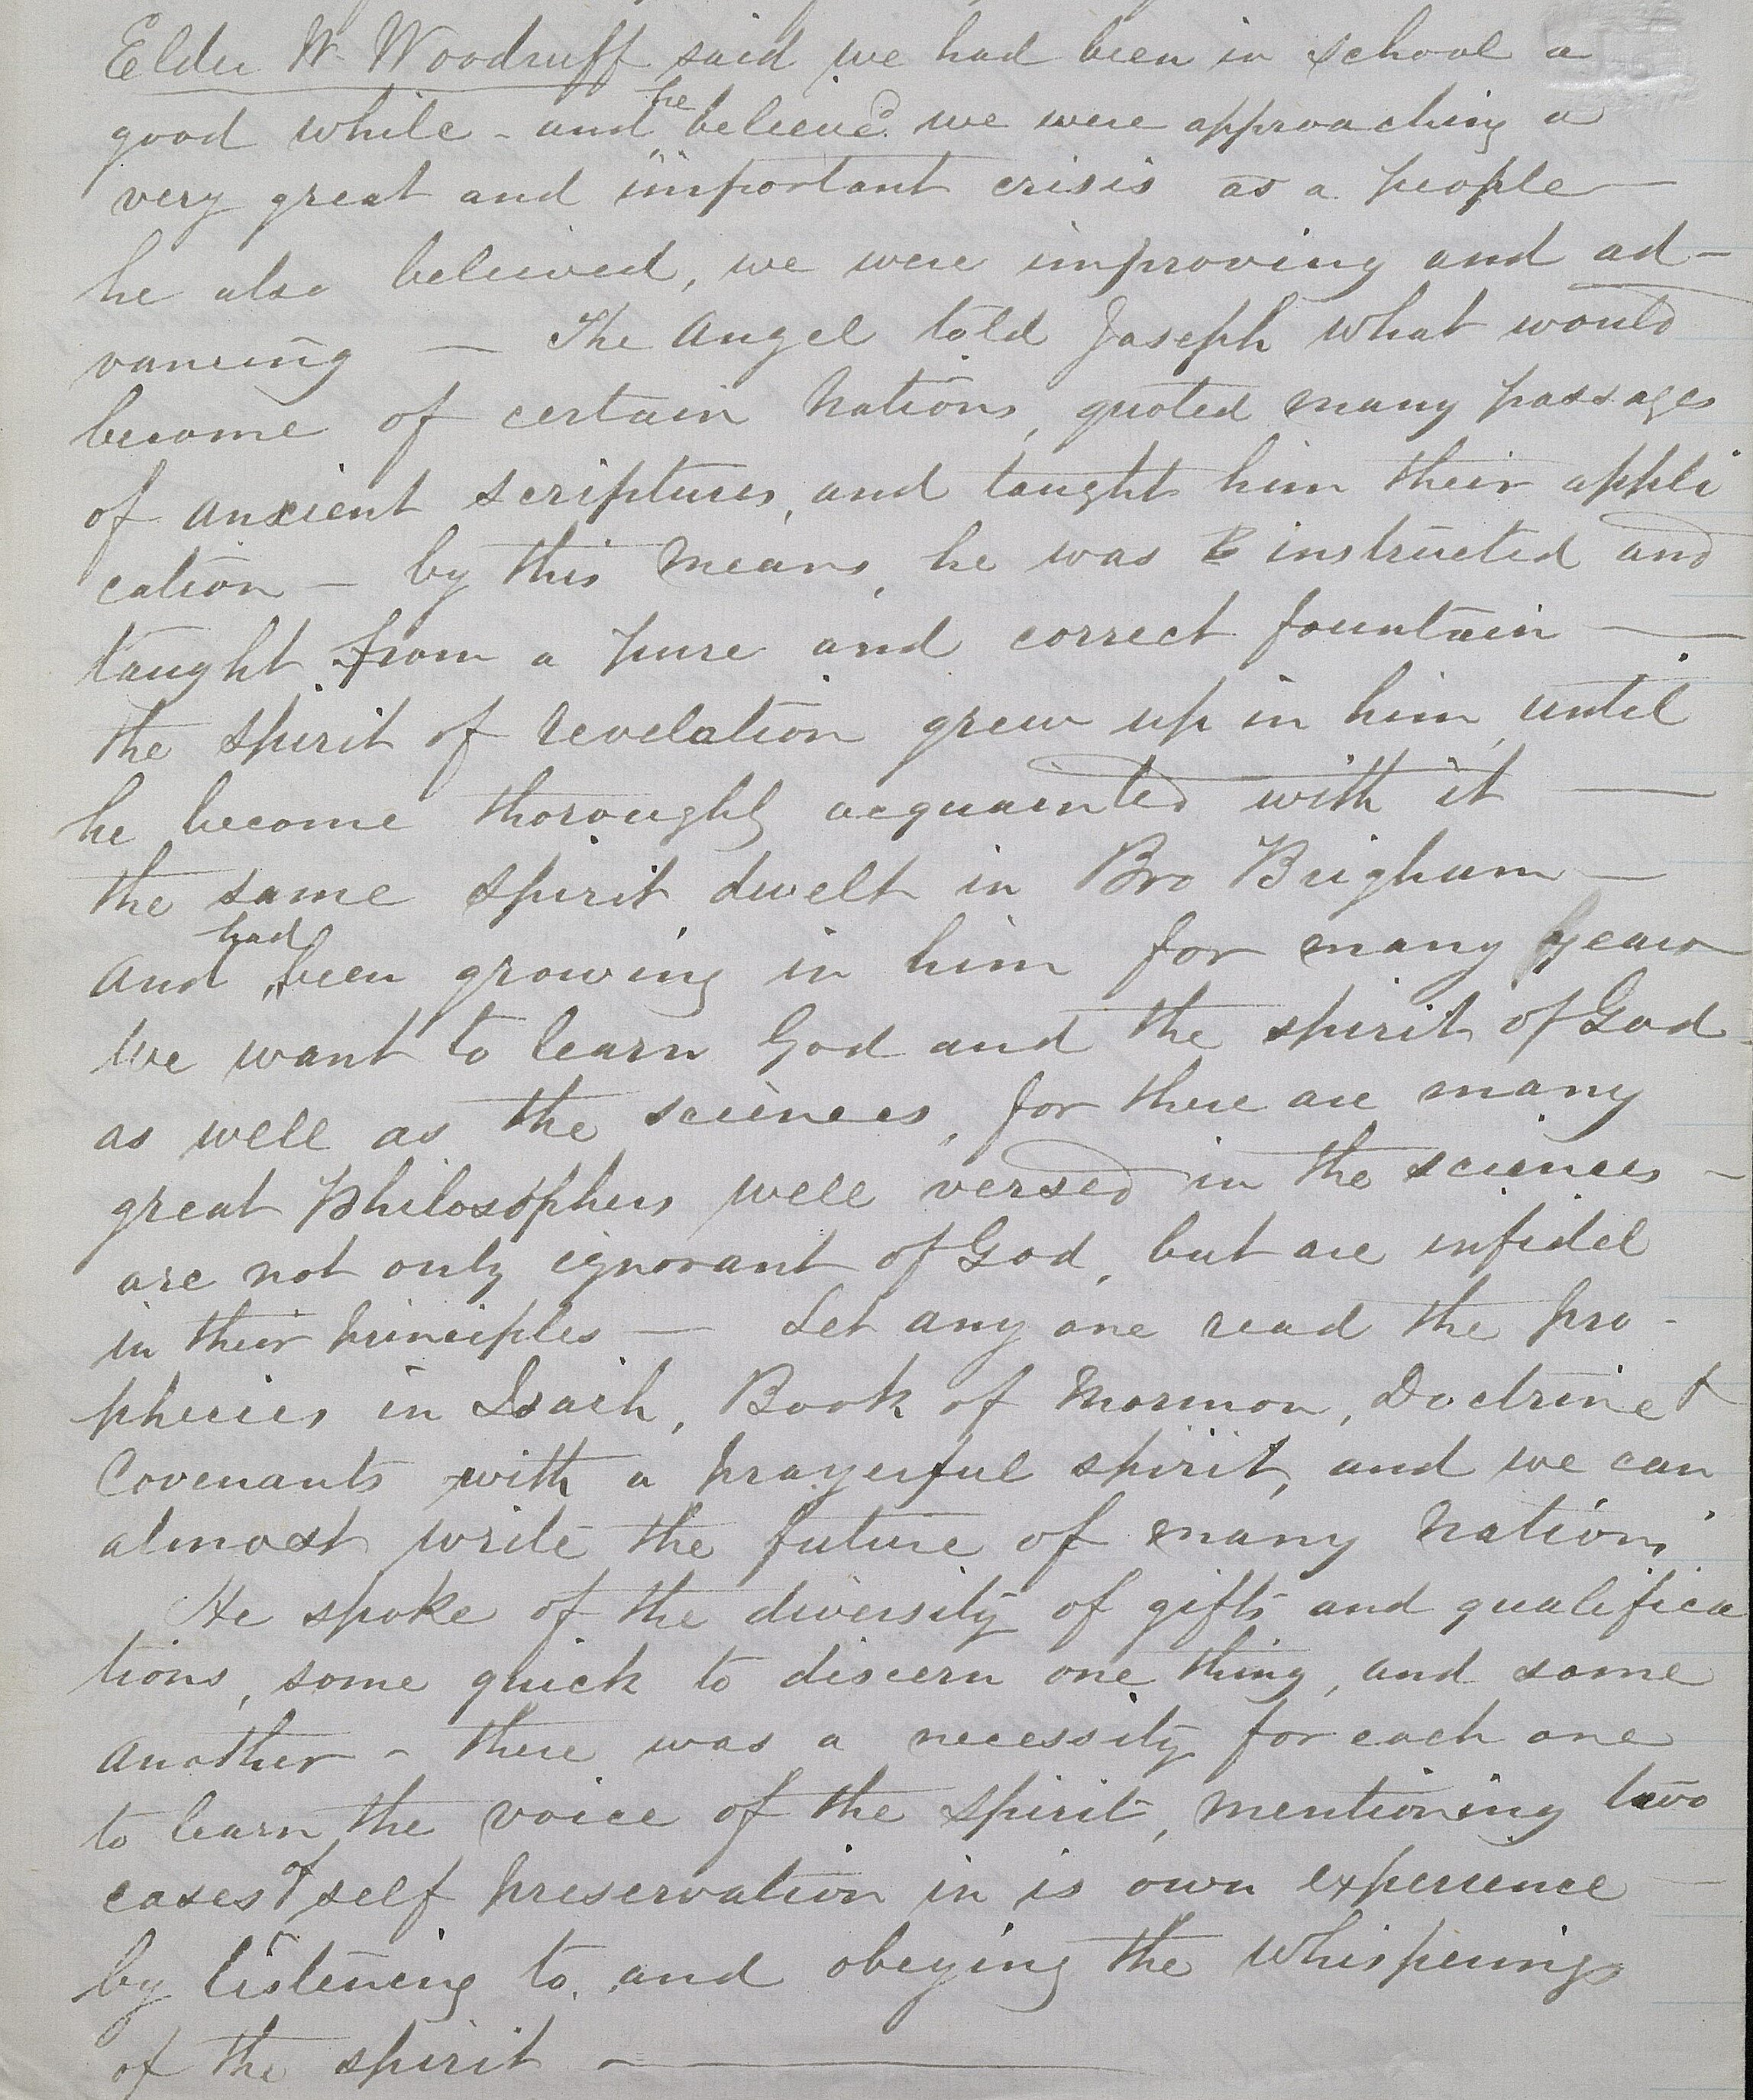 Elder W. Woodruff said we had been in school a
good while - and he believed we were approaching a
very great and important crisis as a people —
he also believed, we were improving and ad-
vancing — The Angel told Joseph what would
become of certain Nations, quoted many passages
of ancient scriptures, and taught him their appli
cation — by this means, he was instructed and
taught from a pure and correct fountain —
the spirit of revelation grew up in him, until
he become thoroughly acquainted with it —
the same spirit dwelt in Bro Brigham —
and had been growing in him for many years
we want to learn God and the spirit of God -
as well as the sciences, for there are many
great Philosophers well versed in the sciences -
are not only ignorant of God, but are infidel
in their principles — Let any one read the pro-
phecies in Isaih, Book of Mormon, Doctrine &
Covenants with a prayerful spirit, and we can
almost write the future of many Nations
He spoke of the diversity of gifts and qualifica
tions, some quick to discern one thing, and some
another - there was a necessity for each one
to learn the voice of the spirit, mentioning two
cases of self preservation in is own experience —
by listening to, and obeying the whisperings
of the spirit —